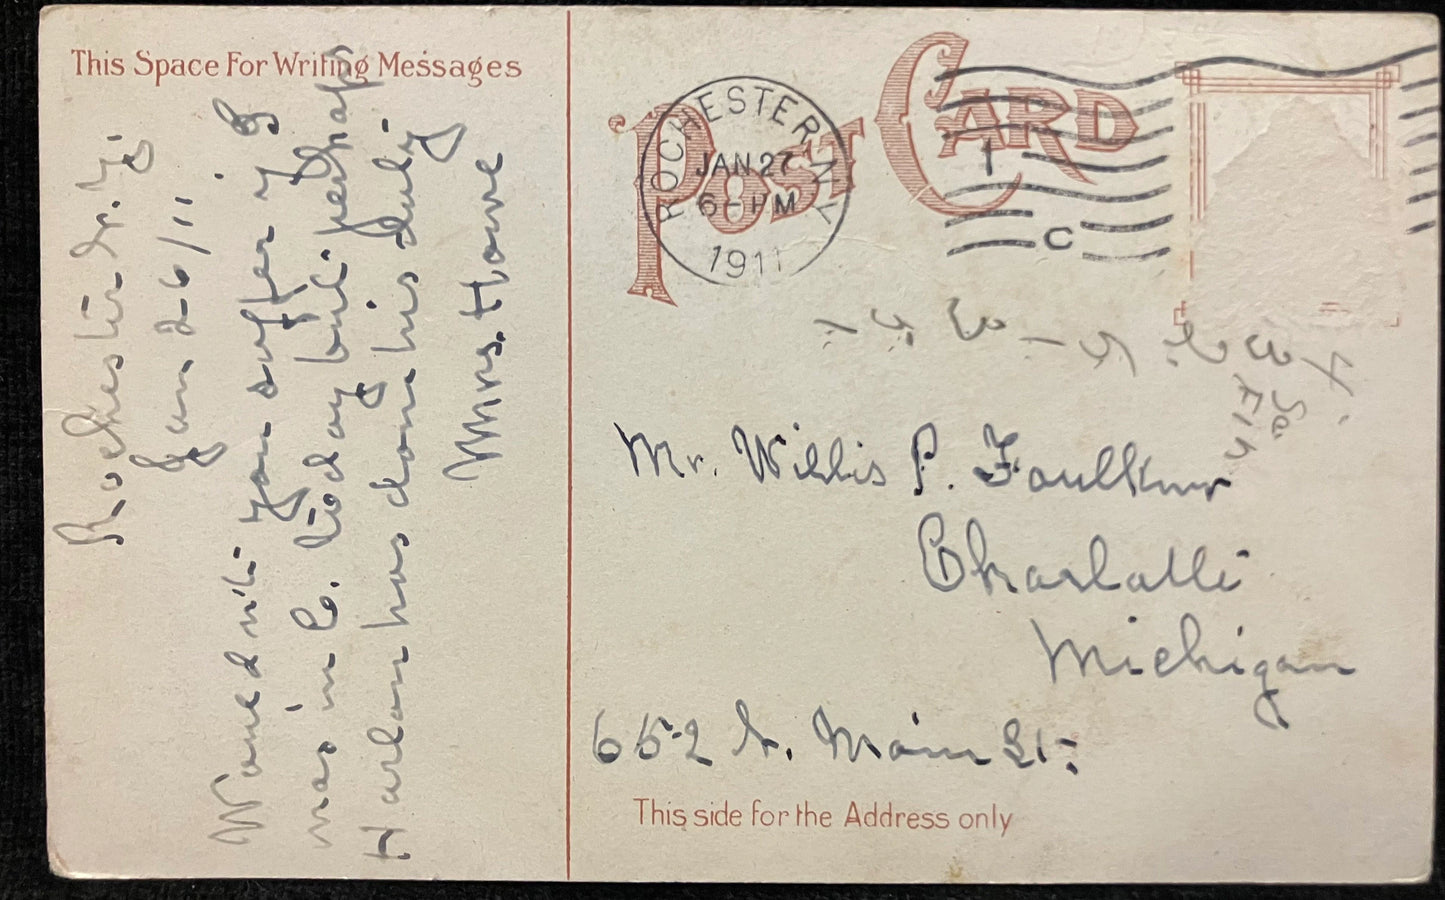 This Space For Writing Messages
Rochester N. Y.
Jan 26/11.
Would n't you suffer if I
was in C. today but perhaps
Harlan has done his duty
Mrs. Howe
POST CARD
ROCHESTER, N.Y.
JAN 27
6 - PM
1911
1
C
Mr. Willis P. Faulkner
Charlotte
Michigan
652 N. Main St.
This side for the Address only